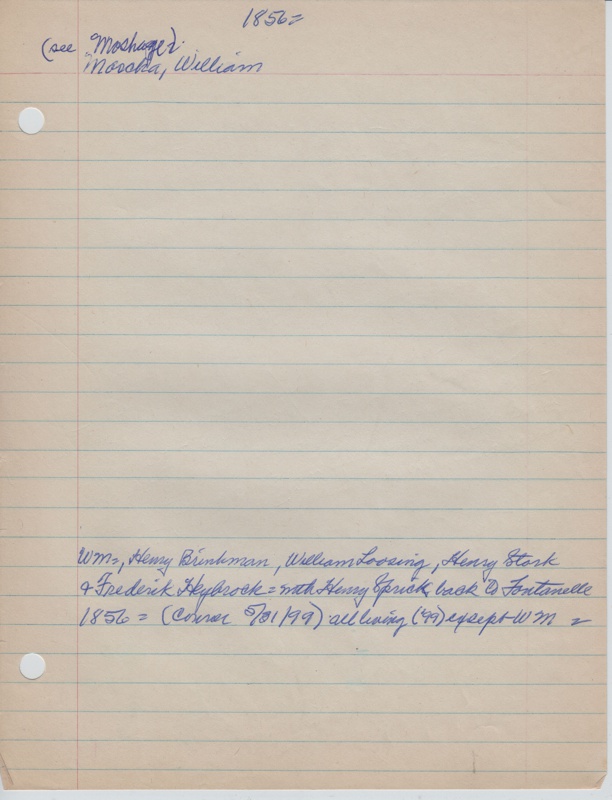 1856=
(see Moshage).
Moscka, William
Wm=, Henry Brinkman, William Loosing, Henry Stork
& Frederik Heybrock = with Henry Sprick, back to Fontanelle
1856 = (Courier 5/31/99) all living ('99) except WM =